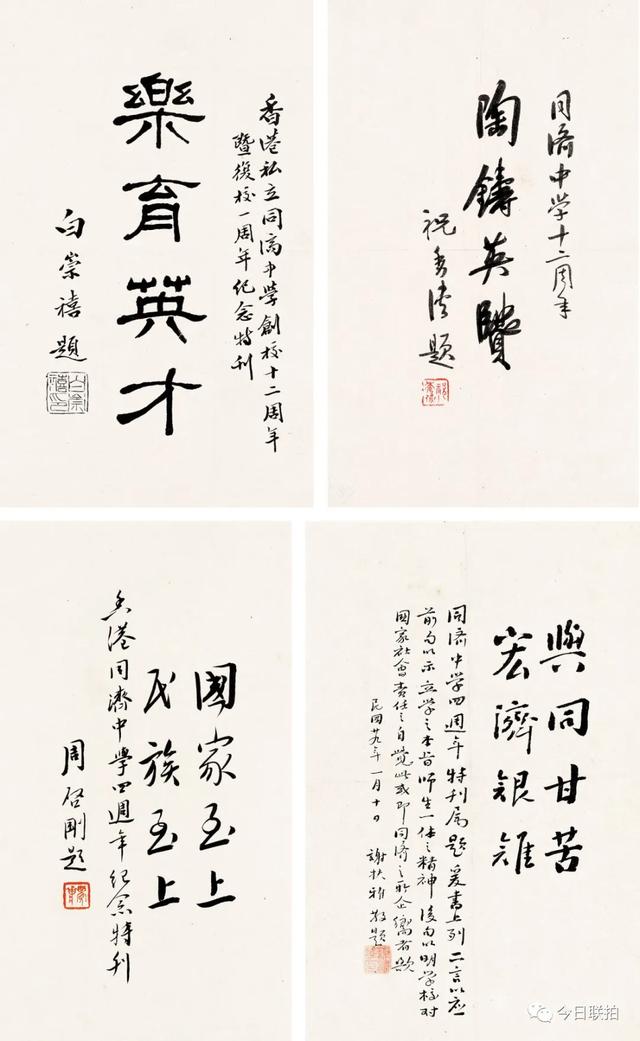 香港私立同濟中學創校十二周年
暨復校一周年紀念特刊
樂育英才
白崇禧題
同濟中学十二周年
陶鑄英賢
祝秀俠題
國家至上
民族至上
香港同濟中學四週年紀念特刊
周啓剛題
與同甘苦
宏濟艱難
同濟中学四週年特刊属題爰書上列二言以應
前句以示立学之本旨師生一体之精神後句以明学校对
國家社會責任之自覺此或即同濟之所企嚮者歟
民國廿九年一月十日
謝扶雅敬題
今日联拍